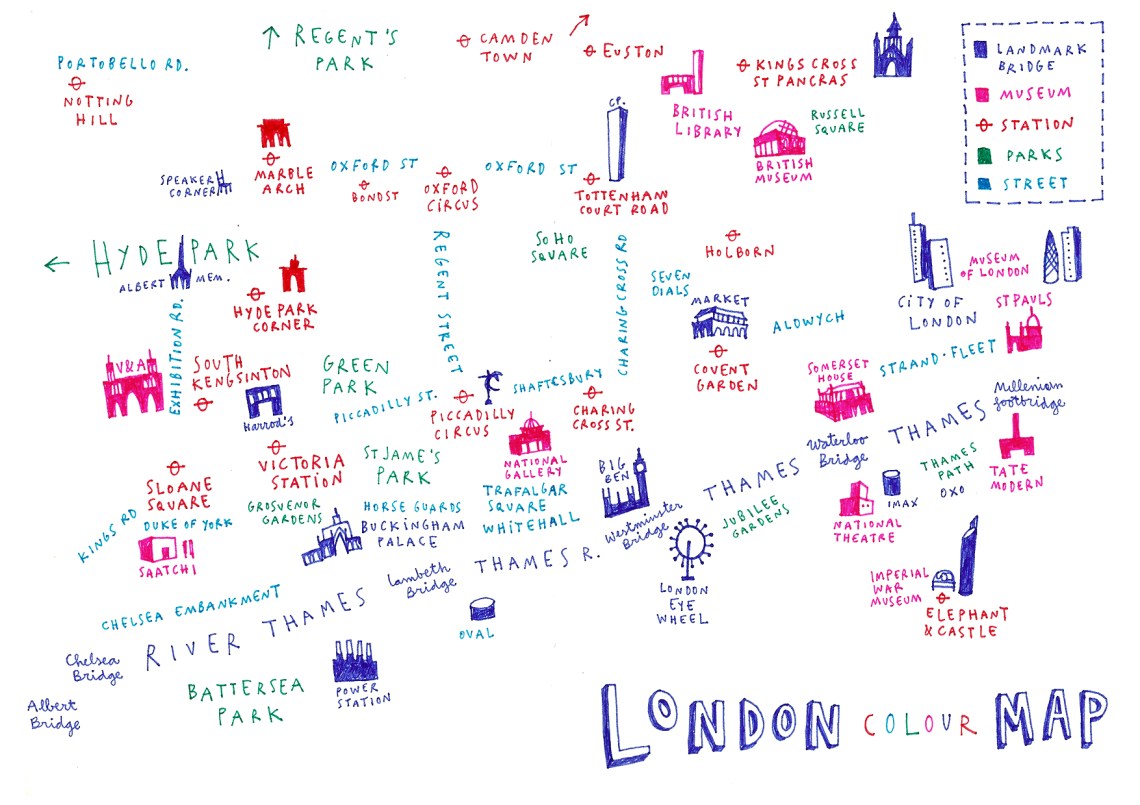 ↑ REGENT'S
PARK
CAMDEN
TOWN
EUSTON
KINGS CROSS
ST PANCRAS
LANDMARK
BRIDGE
MUSEUM
STATION
PARKS
STREET
PORTOBELLO RD.
NOTTING
HILL
CP.
BRITISH
LIBRARY
RUSSELL
SQUARE
BRITISH
MUSEUM
SPEAKER
CORNER
MARBLE
ARCH
OXFORD ST
BONDST
OXFORD
CIRCUS
OXFORD ST
TOTTENHAM
COURT ROAD
← HYDE PARK
ALBERT MEM.
HYDE PARK
CORNER
REGENT STREET
SOHO
SQUARE
CHARING CROSS RD
HOLBORN
SEVEN
DIALS
MARKET
ALDWYCH
COVENT
GARDEN
CITY OF
LONDON
MUSEUM
OF LONDON
ST PAULS
STRAND·FLEET
EXHIBITION RD.
V&A
SOUTH
KENGSINTON
HARROD'S
GREEN
PARK
PICCADILLY ST.
PICCADILLY
CIRCUS
SHAFTESBURY
CHARING
CROSS ST.
NATIONAL
GALLERY
SOMERSET
HOUSE
Millenium
footbridge
THAMES
Waterloo
Bridge
TATE
MODERN
THAMES
PATH
OXO
IMAX
NATIONAL
THEATRE
SLOANE
SQUARE
VICTORIA
STATION
ST JAME'S
PARK
TRAFALGAR
SQUARE
WHITEHALL
BIG
BEN
Westminster
Bridge
THAMES
JUBILEE
GARDENS
KINGS RD
DUKE OF YORK
SAATCHI
GROSVENOR
GARDENS
HORSE GUARDS
BUCKINGHAM
PALACE
Lambeth
Bridge
THAMES R.
LONDON
EYE
WHEEL
IMPERIAL
WAR
MUSEUM
ELEPHANT
& CASTLE
CHELSEA EMBANKMENT
RIVER THAMES
OVAL
Chelsea
Bridge
Albert
Bridge
BATTERSEA
PARK
POWER
STATION
LONDON COLOUR MAP